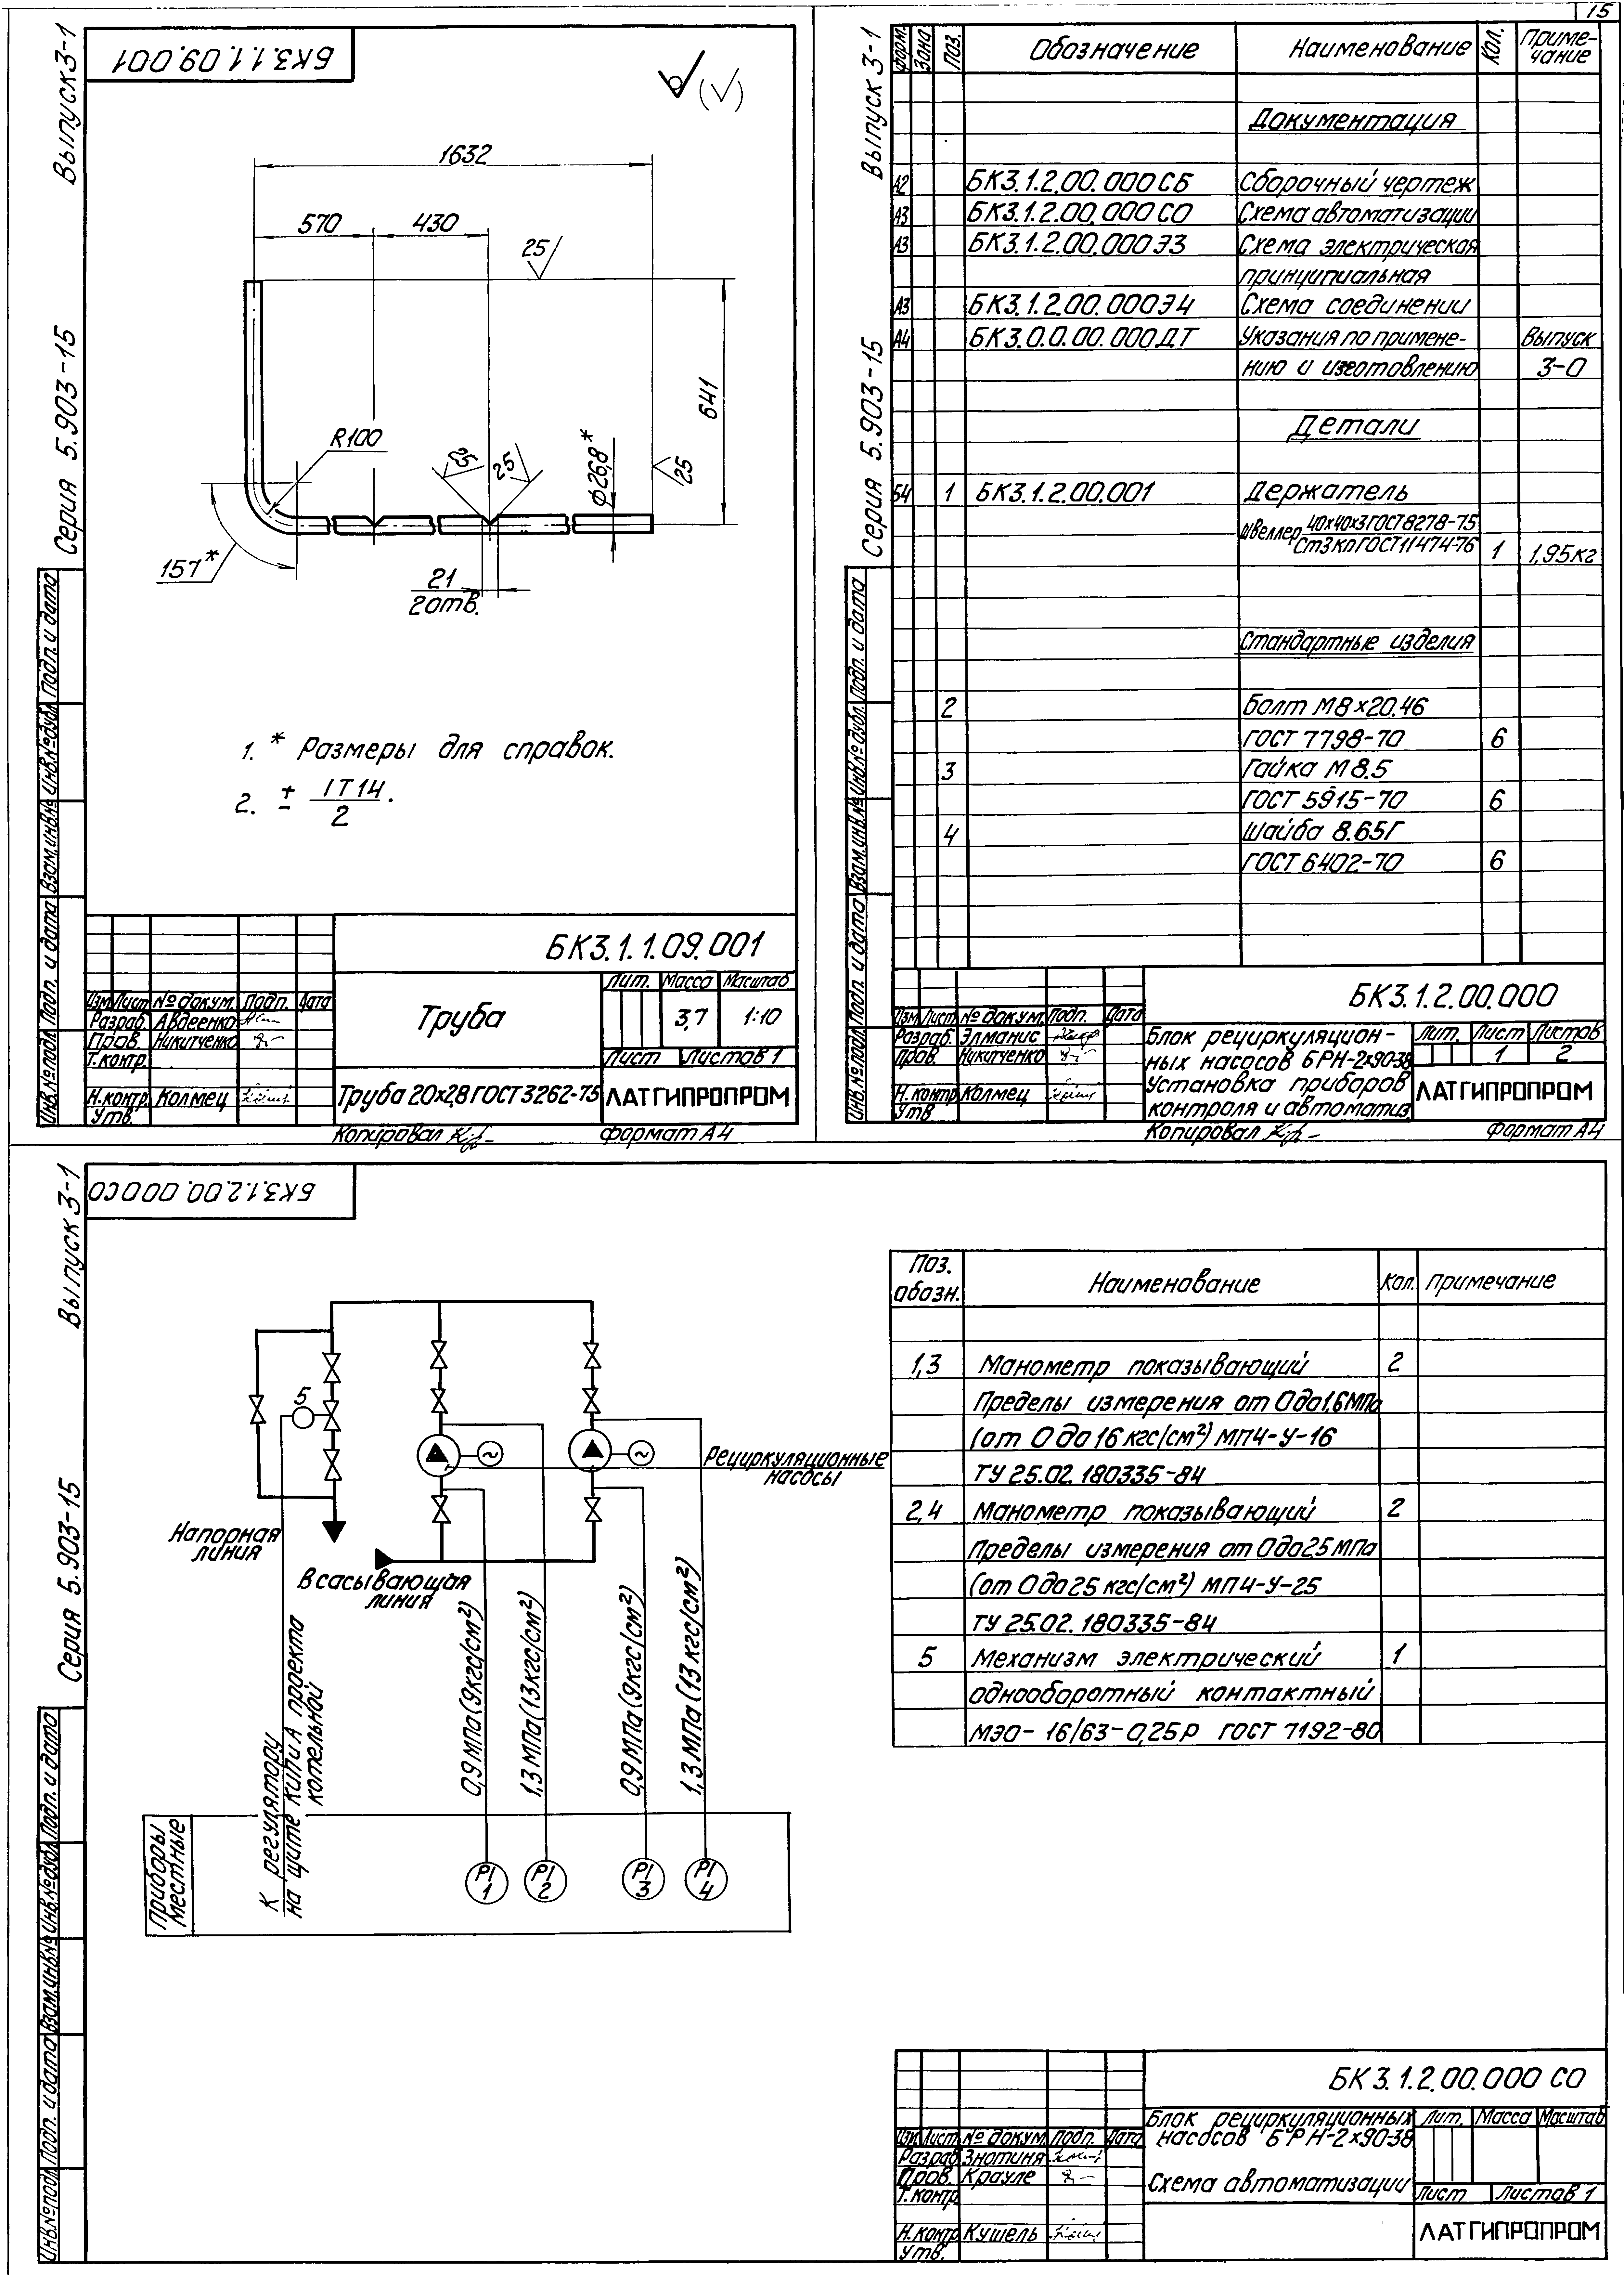 15
Выпуск 3-1
Серия 5.903-15
БК3.1.1.09.001
(√)
1632
570
430
25
641
R100
25
25
⌀26,8*
25
157*
21
2 отв.
1. * Размеры для справок.
2. ± IT14/2.
Инв.№ подл. Подп. и дата Взам.инв.№ Инв.№ дубл. Подп. и дата
БК3.1.1.09.001
Изм Лист № докум. Подп. Дата
Разраб. Авдеенко
Пров. Никитченко
Т.контр.
Н.контр. Колмец
Утв.
Труба
Лит. Масса Масштаб
3,7 1:10
Лист Листов 1
Труба 20х2,8 ГОСТ 3262-75
ЛАТГИПРОПРОМ
Копировал
Формат А4
Выпуск 3-1
Серия 5.903-15
Форм. Зона Поз. Обозначение Наименование Кол. Приме-
чание
Документация
А2 БК3.1.2.00.000СБ Сборочный чертеж
А3 БК3.1.2.00.000СО Схема автоматизации
А3 БК3.1.2.00.000Э3 Схема электрическая
принципиальная
А3 БК3.1.2.00.000Э4 Схема соединении
А4 БК3.0.0.00.000ДТ Указания по примене- Выпуск
нию и изготовлению 3-0
Детали
Б4 1 БК3.1.2.00.001 Держатель
Швеллер 40х40х3 ГОСТ 8278-75
Ст3кп ГОСТ 11474-76 1 1,95кг
Стандартные изделия
2 Болт М8×20.46
ГОСТ 7798-70 6
3 Гайка М8.5
ГОСТ 5915-70 6
4 Шайба 8.65Г
ГОСТ 6402-70 6
Инв.№ подл. Подп. и дата Взам.инв.№ Инв.№ дубл. Подп. и дата
БК3.1.2.00.000
Изм Лист № докум. Подп. Дата
Разраб. Элманис
Пров. Никитченко
Н.контр. Колмец
Утв.
Блок рециркуляцион-
ных насосов БРН-2х90-38
Установка приборов
контроля и автоматиз.
Лит. Лист Листов
1 2
ЛАТГИПРОПРОМ
Копировал
Формат А4
Выпуск 3-1
Серия 5.903-15
БК3.1.2.00.000СО
5
Рециркуляционные
насосы
Напорная
линия
Всасывающая
линия
К регулятору
на щите КИПиА проекта
котельной
0,9 МПа (9кгс/см²)
1,3 МПа (13кгс/см²)
0,9 МПа (9кгс/см²)
1,3 МПа (13 кгс/см²)
Приборы
местные
PI
1
PI
2
PI
3
PI
4
Поз.
обозн. Наименование Кол. Примечание
1,3 Манометр показывающий 2
Пределы измерения от 0 до 1,6 МПа
(от 0 до 16 кгс/см²) МП4-У-16
ТУ 25.02.180335-84
2,4 Манометр показывающий 2
Пределы измерения от 0 до 2,5 МПа
(от 0 до 25 кгс/см²) МП4-У-25
ТУ 25.02.180335-84
5 Механизм электрический 1
однооборотный контактный
МЭО-16/63-0,25Р ГОСТ 7192-80
Инв.№ подл. Подп. и дата Взам.инв.№ Инв.№ дубл. Подп. и дата
БК3.1.2.00.000 СО
Изм Лист № докум. Подп. Дата
Разраб. Знотиня
Пров. Крауле
Т.контр.
Н.контр. Кушель
Утв.
Блок рециркуляционных
насосов БРН-2х90-38
Схема автоматизации
Лит. Масса Масштаб
Лист Листов 1
ЛАТГИПРОПРОМ